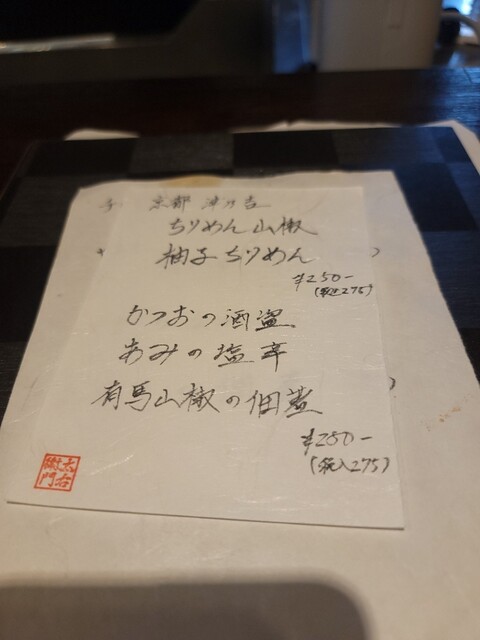 京都 津乃吉
ちりめん山椒
柚子ちりめん
¥250-
(税込275)
かつおの酒盗
あみの塩辛
有馬山椒の佃煮
¥250-
(税入275)
太右
衛門